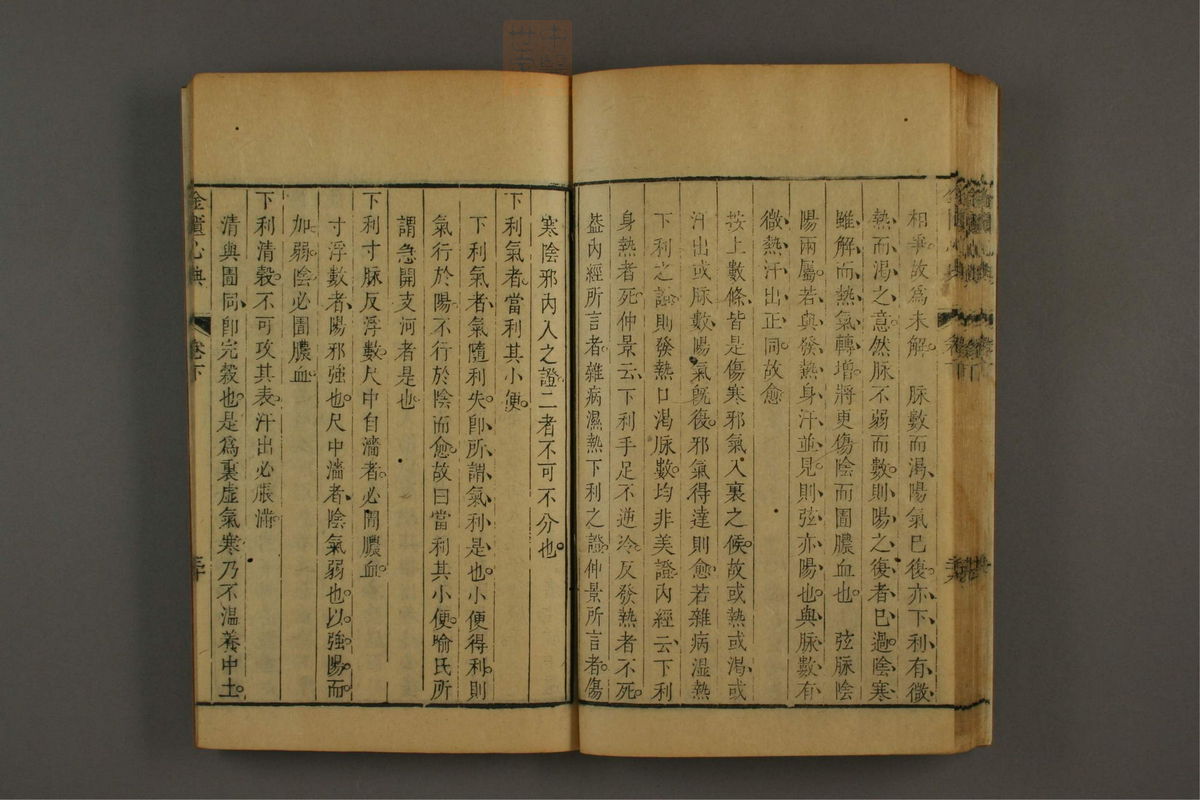 相爭故爲未解　脉數而渴陽氣已復亦下利有微
熱而渴之意然脉不弱而數則陽之復者已過陰寒
雖解而熱氣轉增將更傷陰而圊膿血也　弦脉陰
陽兩屬若與發熱身汗並見則弦亦陽也與脉數有
微熱汗出正同故愈
按上數條皆是傷寒邪氣入裏之候故或熱或渴或
汗出或脉數陽氣旣復邪氣得達則愈若雜病湿熱
下利之證則發熱口渴脉數均非美證內經云下利
身熱者死仲景云下利手足不逆冷反發熱者不死
葢內經所言者雜病濕熱下利之證仲景所言者傷
寒陰邪內入之證二者不可不分也
下利氣者當利其小便
下利氣者氣隨利失卽所謂氣利是也小便得利則
氣行於陽不行於陰而愈故曰當利其小便喻氏所
謂急開支河者是也
下利寸脉反浮數尺中自濇者必圊膿血
寸浮數者陽邪強也尺中濇者陰氣弱也以強陽而
加弱陰必圊膿血
下利清穀不可攻其表汗出必脹滿
清與圊同卽完穀也是爲裏虛氣寒乃不溫養中土
金匱心典
卷下
三十